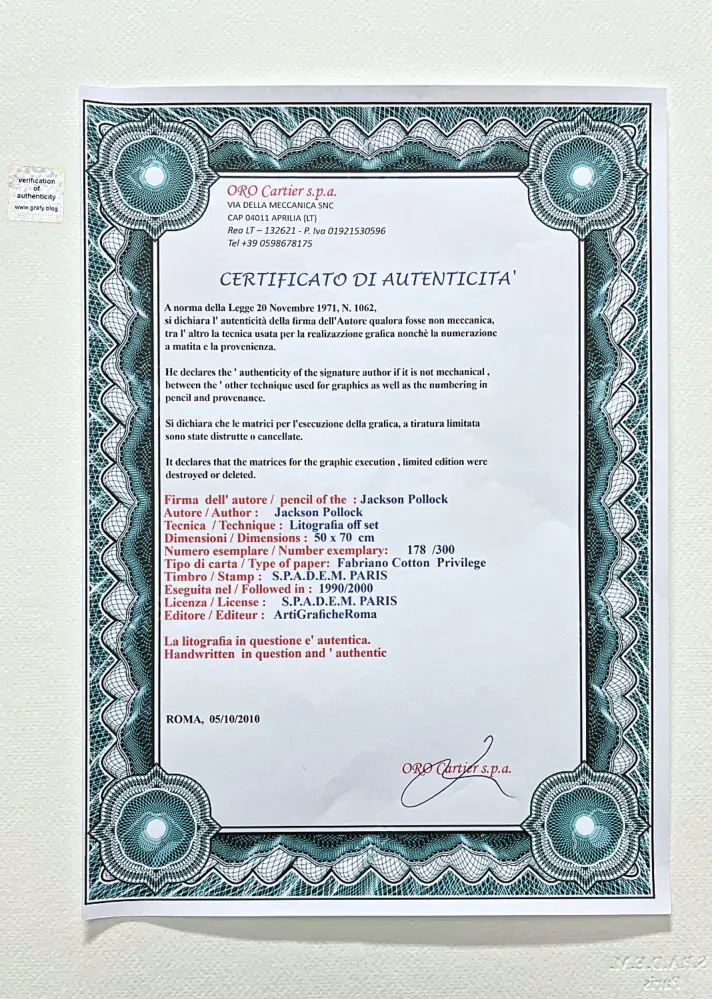 verification
of
authenticity
www.grafy.blog
ORO Cartier s.p.a.
VIA DELLA MECCANICA SNC
CAP 04011 APRILIA (LT)
Rea LT – 132621 - P. Iva 01921530596
Tel +39 0598678175
CERTIFICATO DI AUTENTICITA'
A norma della Legge 20 Novembre 1971, N. 1062,
si dichiara l' autenticità della firma dell'Autore qualora fosse non meccanica,
tra l' altro la tecnica usata per la realizazzione grafica nonchè la numerazione
a matita e la provenienza.
He declares the ' authenticity of the signature author if it is not mechanical ,
between the ' other technique used for graphics as well as the numbering in
pencil and provenance.
Si dichiara che le matrici per l'esecuzione della grafica, a tiratura limitata
sono state distrutte o cancellate.
It declares that the matrices for the graphic execution , limited edition were
destroyed or deleted.
Firma dell' autore / pencil of the : Jackson Pollock
Autore / Author : Jackson Pollock
Tecnica / Technique : Litografia off set
Dimensioni / Dimensions : 50 x 70 cm
Numero esemplare / Number exemplary: 178 /300
Tipo di carta / Type of paper: Fabriano Cotton Privilege
Timbro / Stamp : S.P.A.D.E.M. PARIS
Eseguita nel / Followed in : 1990/2000
Licenza / License : S.P.A.D.E.M. PARIS
Editore / Editeur : ArtiGraficheRoma
La litografia in questione e' autentica.
Handwritten in question and ' authentic
ROMA, 05/10/2010
ORO Cartier s.p.a.
S.P.A.D.E.M.
Paris